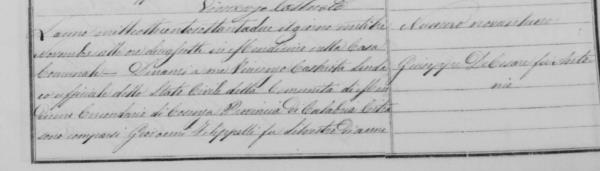 Vincenzo Castriota
L'anno milleottocentosettantadue il giorno ventitre
Novembre alle ore dieci in Mendicino nella Casa
Comunale. Dinanzi a me Vincenzo Castriota Sinda
co uffiziale dello Stato Civile della Comunità di Men
dicino Circondario di Cosenza Provincia di Calabria Citra
sono comparsi Giovanni Filippelli fu Silvestro di anni
Numero novantuno
Giuseppe De Cesare fu Anto
nio